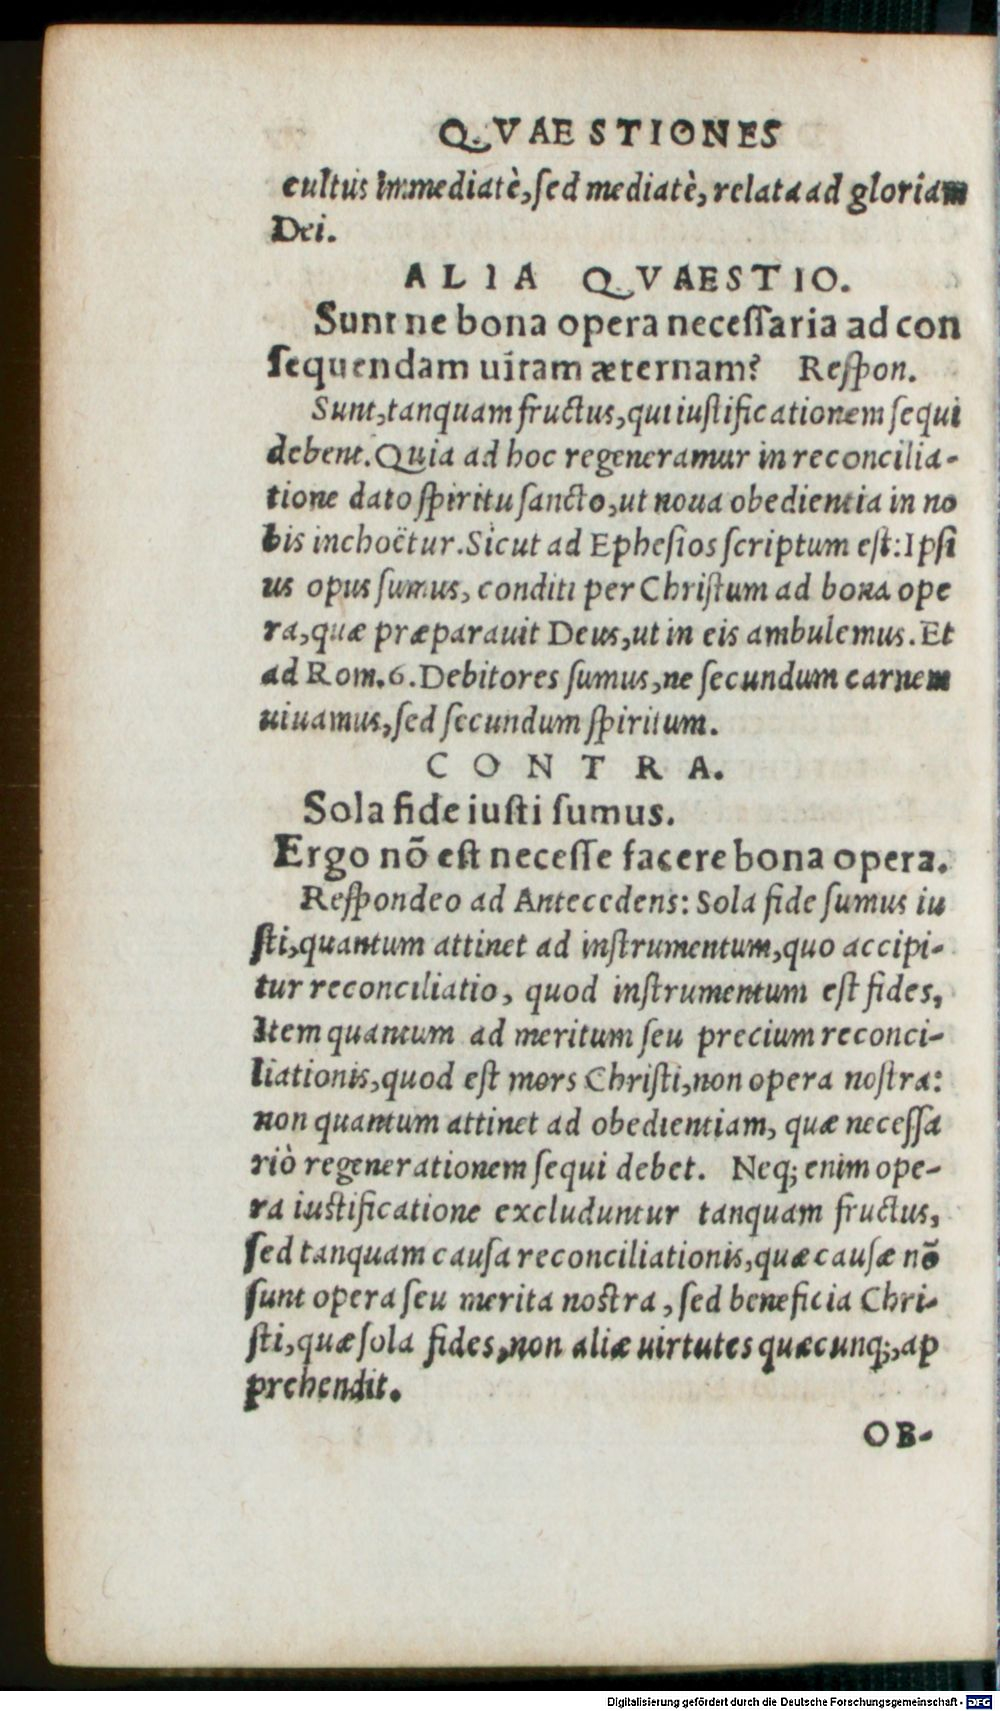 QVAESTIONES
cultus immediatè, sed mediatè, relata ad gloriam
Dei.
ALIA QVAESTIO.
Sunt ne bona opera necessaria ad con
sequendam uitam æternam? Respon.
Sunt, tanquam fructus, qui iustificationem sequi
debent. Quia ad hoc regeneramur in reconcilia-
tione dato spiritu sancto, ut noua obedientia in no
bis inchoëtur. Sicut ad Ephesios scriptum est: Ipsi
us opus sumus, conditi per Christum ad bona ope
ra, quæ præparauit Deus, ut in eis ambulemus. Et
ad Rom. 6. Debitores sumus, ne secundum carnem
uiuamus, sed secundum spiritum.
CONTRA.
Sola fide iusti sumus.
Ergo nō est necesse facere bona opera.
Respondeo ad Antecedens: Sola fide sumus iu
sti, quantum attinet ad instrumentum, quo accipi-
tur reconciliatio, quod instrumentum est fides,
Item quantum ad meritum seu precium reconci-
liationis, quod est mors Christi, non opera nostra:
non quantum attinet ad obedientiam, quæ necessa
riò regenerationem sequi debet. Neq; enim ope-
ra iustificatione excluduntur tanquam fructus,
sed tanquam causa reconciliationis, quæ causæ nō
sunt opera seu merita nostra, sed beneficia Chri-
sti, quæ sola fides, non aliæ uirtutes quæcunq;, ap
prehendit.
OB-
Digitalisierung gefördert durch die Deutsche Forschungsgemeinschaft - DFG